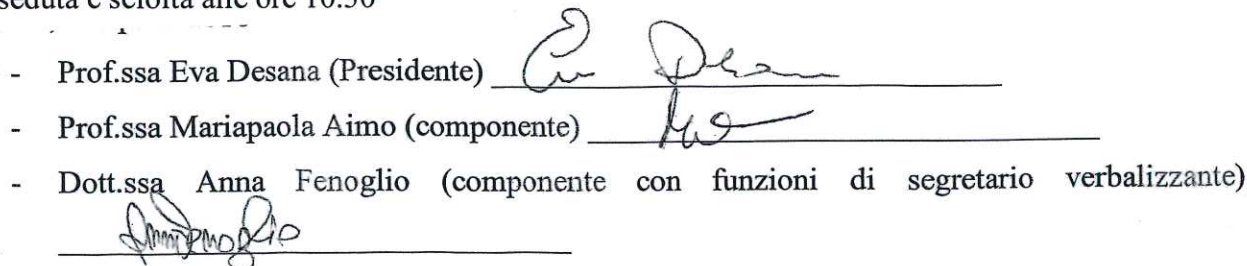 seduta è sciolta alle ore 10.30
- Prof.ssa Eva Desana (Presidente)
- Prof.ssa Mariapaola Aimo (componente)
- Dott.ssa Anna Fenoglio (componente con funzioni di segretario verbalizzante)
Anna Fenoglio